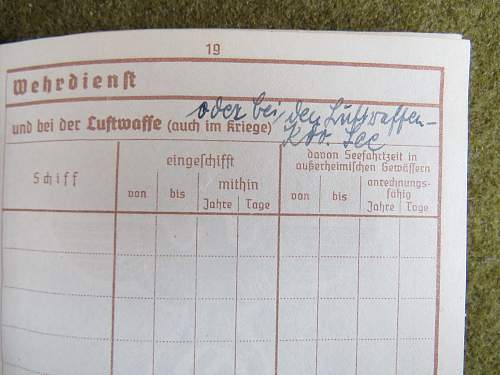 19
Wehrdienst
oder bei den Luftwaffen-
und bei der Luftwaffe (auch im Kriege)
Kdo. See
Schiff
eingeschifft
davon Seefahrtzeit in
außerheimischen Gewässern
von
bis
mithin
Jahre Tage
von
bis
anrechnungs-
fähig
Jahre Tage